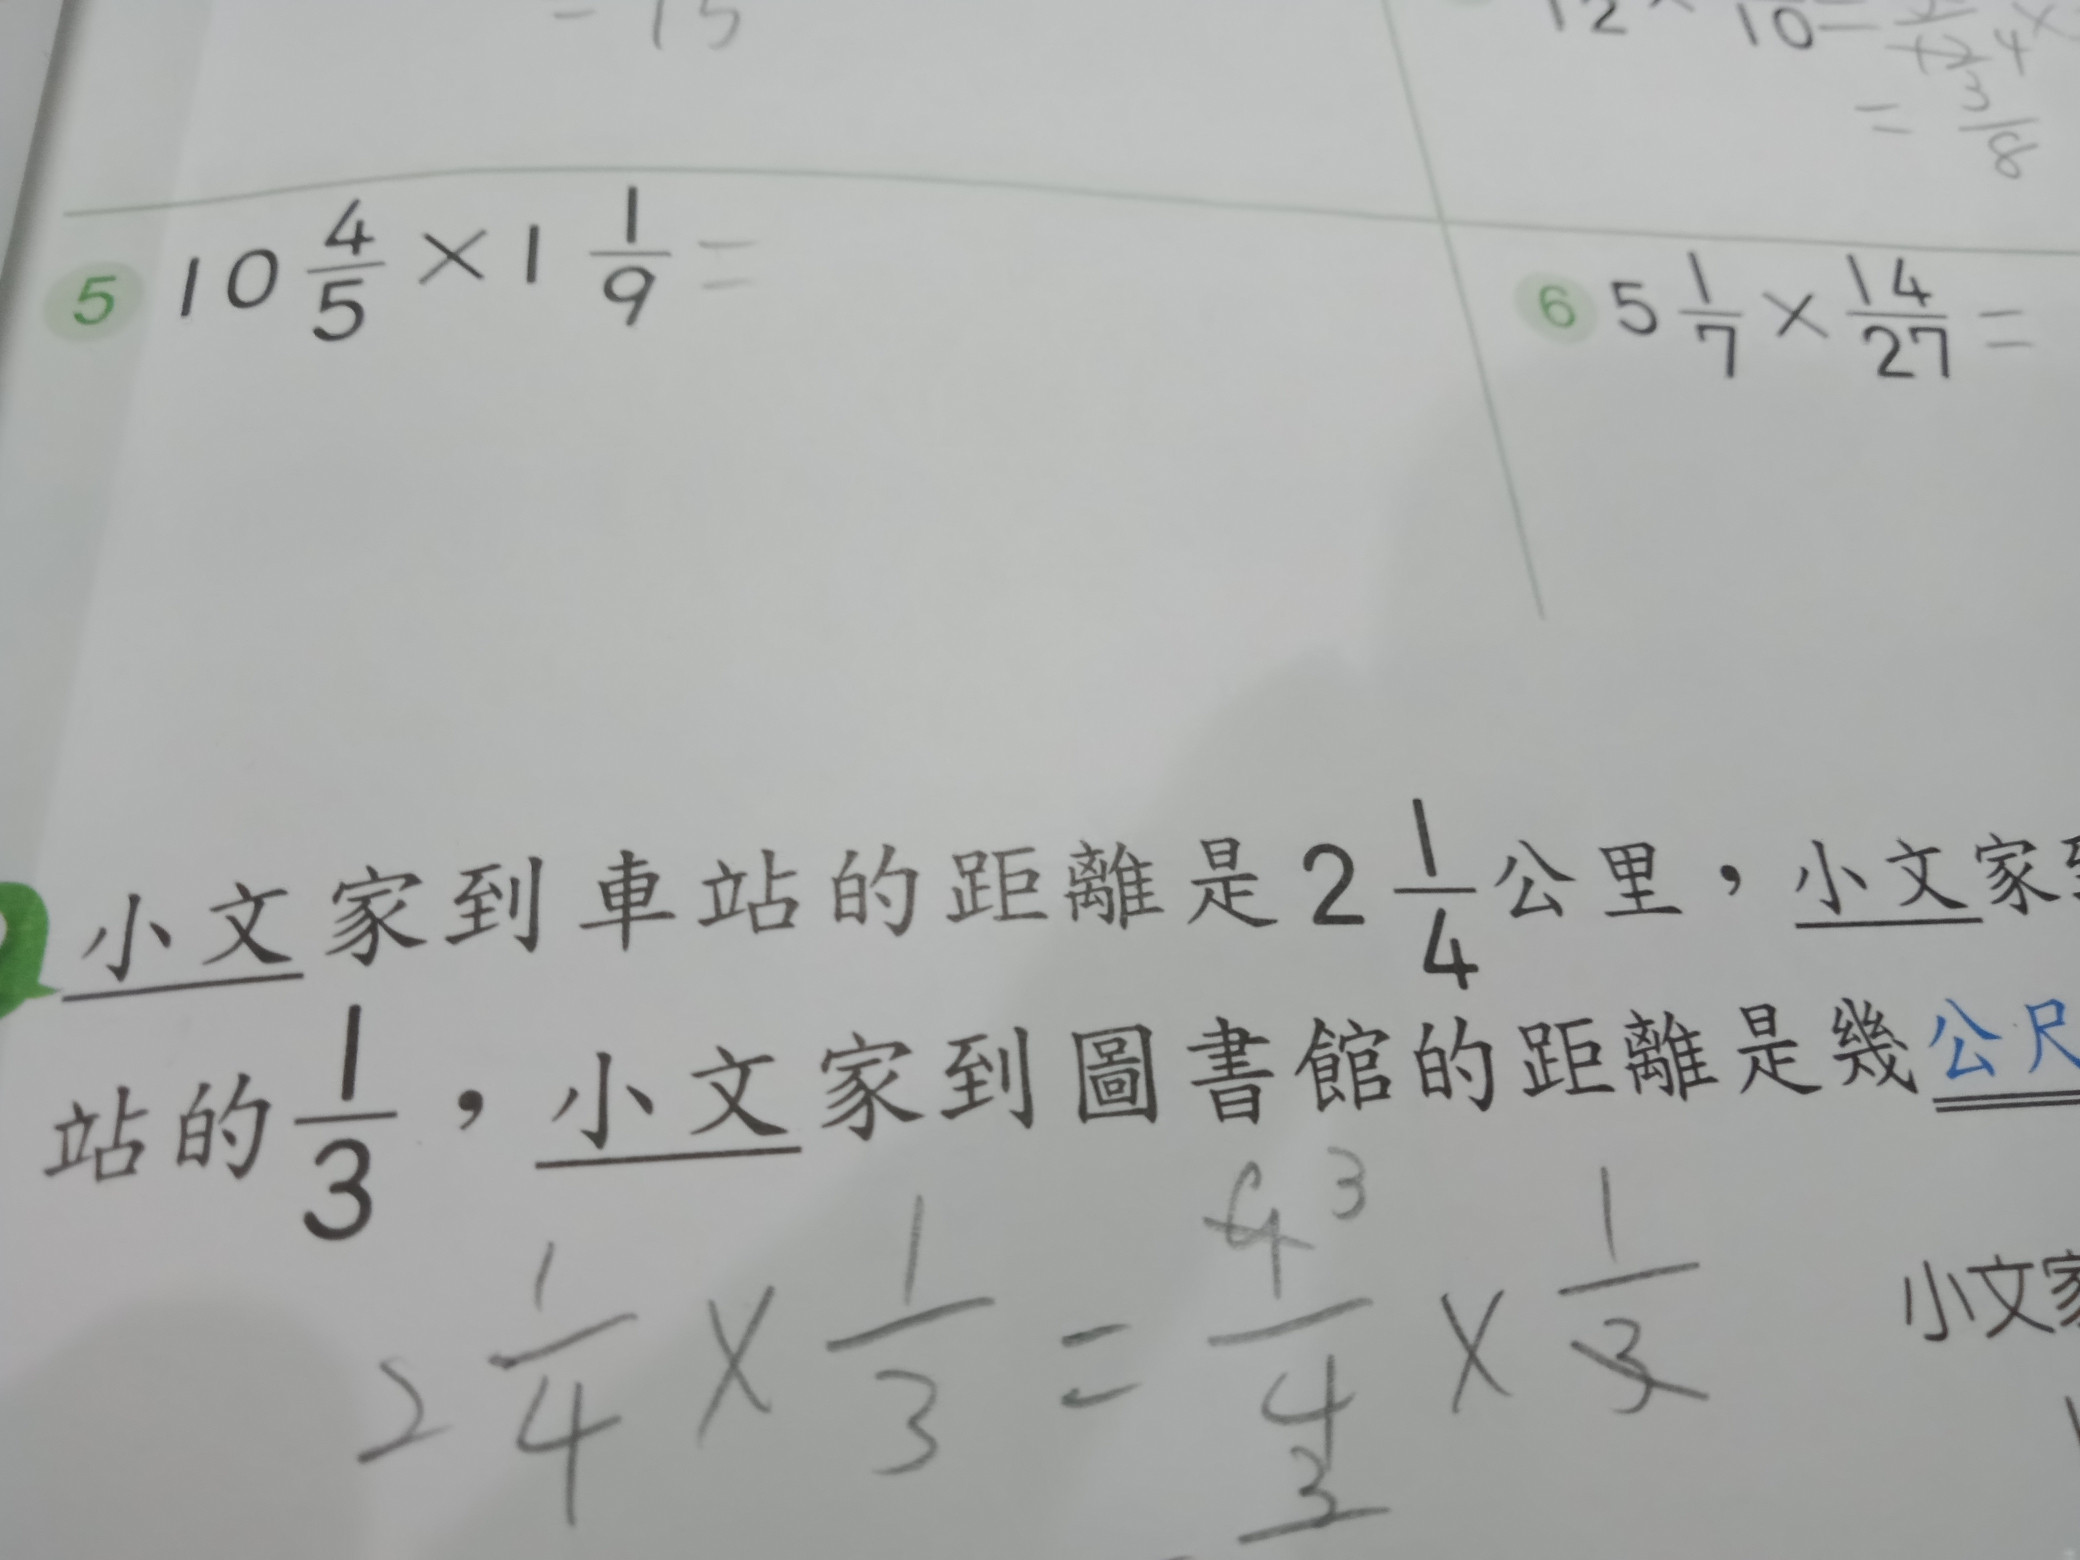 = 15
12 × 10 =
= 3/8
5 10 4/5 × 1 1/9 =
6 5 1/7 × 14/27 =
小文家到車站的距離是2 1/4公里，小文家到
站的1/3，小文家到圖書館的距離是幾公尺
2 1/4 × 1/3 = 9/4 3 × 1/3
小文家
3